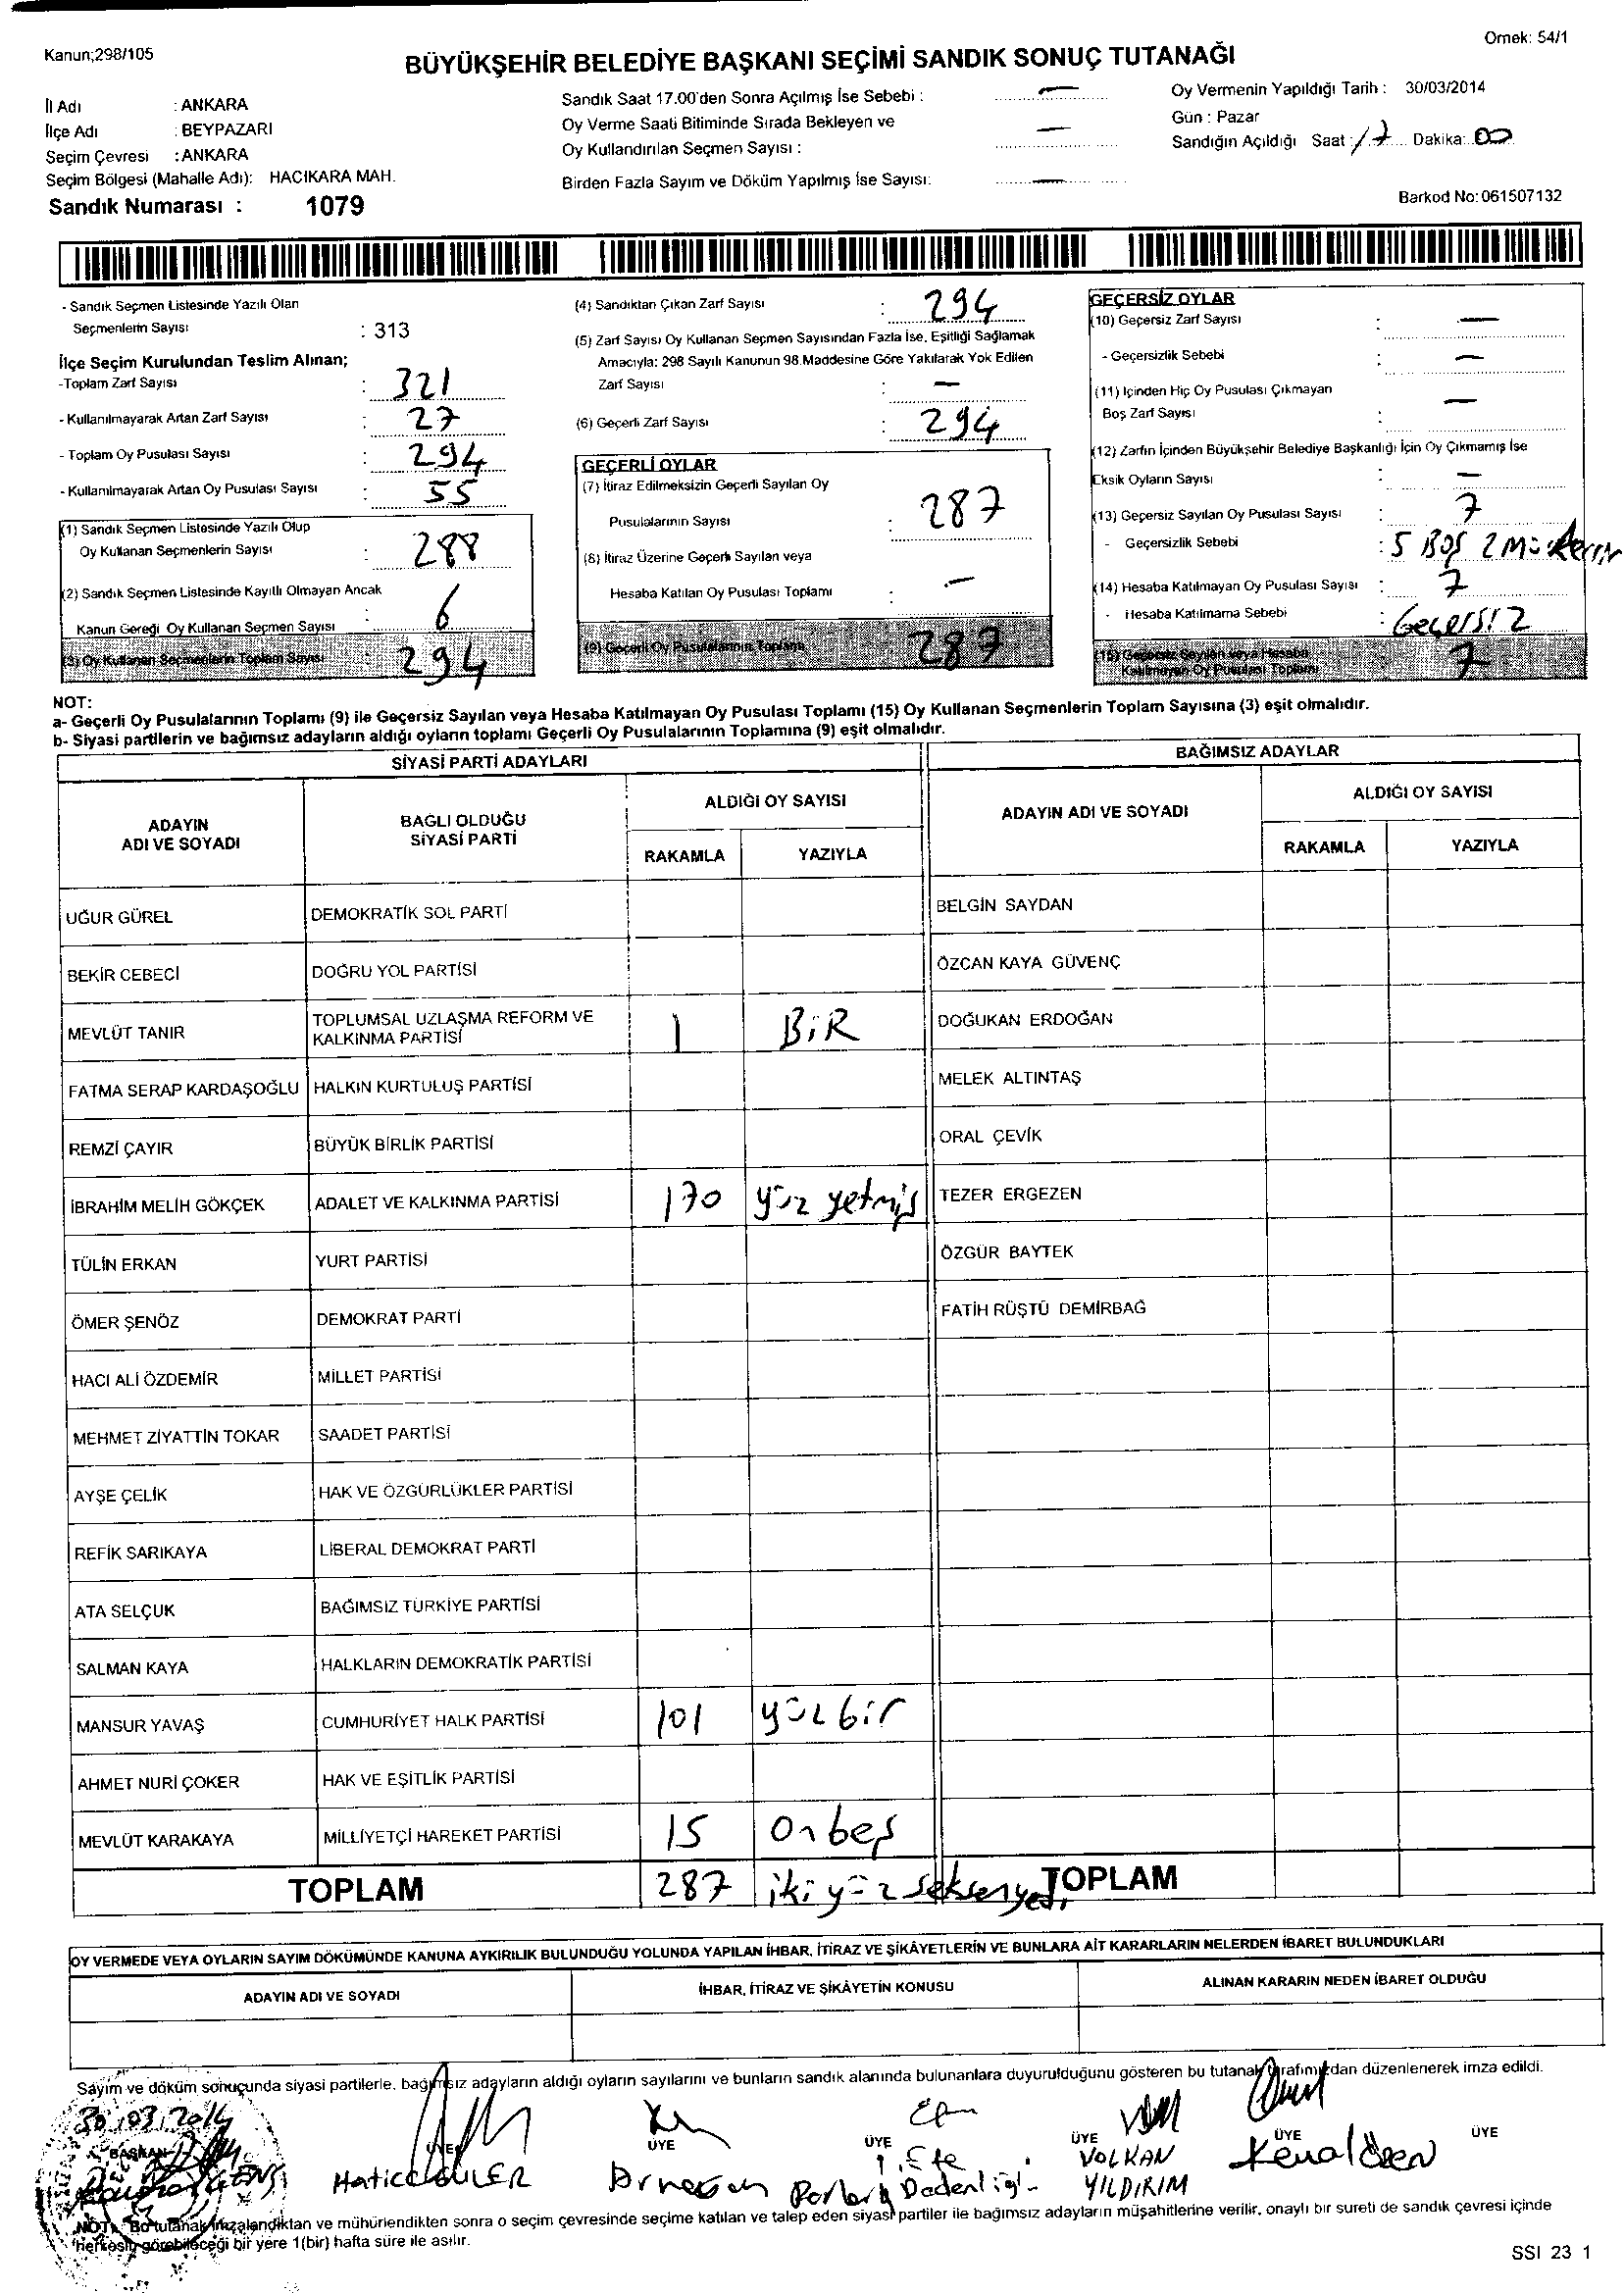 Kanun;298/105
Örnek: 54/1
BÜYÜKŞEHİR BELEDİYE BAŞKANI SEÇİMİ SANDIK SONUÇ TUTANAĞI
İl Adı : ANKARA
İlçe Adı : BEYPAZARI
Seçim Çevresi : ANKARA
Seçim Bölgesi (Mahalle Adı): HACIKARA MAH.
Sandık Numarası : 1079
Sandık Saat 17.00'den Sonra Açılmış İse Sebebi : —
Oy Verme Saati Bitiminde Sırada Bekleyen ve
Oy Kullandırılan Seçmen Sayısı : —
Birden Fazla Sayım ve Döküm Yapılmış İse Sayısı: —
Oy Vermenin Yapıldığı Tarih : 30/03/2014
Gün : Pazar
Sandığın Açıldığı Saat : 17 Dakika: 00
Barkod No: 061507132
- Sandık Seçmen Listesinde Yazılı Olan
Seçmenlerin Sayısı : 313
İlçe Seçim Kurulundan Teslim Alınan;
-Toplam Zarf Sayısı : 321
- Kullanılmayarak Artan Zarf Sayısı : 27
- Toplam Oy Pusulası Sayısı : 294
- Kullanılmayarak Artan Oy Pusulası Sayısı : 55
(1) Sandık Seçmen Listesinde Yazılı Olup
Oy Kullanan Seçmenlerin Sayısı : 288
(2) Sandık Seçmen Listesinde Kayıtlı Olmayan Ancak
Kanun Gereği Oy Kullanan Seçmen Sayısı : 6
(3) Oy Kullanan Seçmenlerin Toplam Sayısı : 294
(4) Sandıktan Çıkan Zarf Sayısı : 294
(5) Zarf Sayısı Oy Kullanan Seçmen Sayısından Fazla İse, Eşitliği Sağlamak
Amacıyla: 298 Sayılı Kanunun 98.Maddesine Göre Yakılarak Yok Edilen
Zarf Sayısı : —
(6) Geçerli Zarf Sayısı : 294
GEÇERLİ OYLAR
(7) İtiraz Edilmeksizin Geçerli Sayılan Oy
Pusulalarının Sayısı : 287
(8) İtiraz Üzerine Geçerli Sayılan veya
Hesaba Katılan Oy Pusulası Toplamı : —
(9) Geçerli Oy Pusulalarının Toplamı 287
GEÇERSİZ OYLAR
(10) Geçersiz Zarf Sayısı : —
- Geçersizlik Sebebi : —
(11) İçinden Hiç Oy Pusulası Çıkmayan
Boş Zarf Sayısı : —
(12) Zarfın İçinden Büyükşehir Belediye Başkanlığı İçin Oy Çıkmamış İse
Eksik Oyların Sayısı : —
(13) Geçersiz Sayılan Oy Pusulası Sayısı : 7
- Geçersizlik Sebebi : 5 Boş 2 Mükerrir
(14) Hesaba Katılmayan Oy Pusulası Sayısı : 7
- Hesaba Katılmama Sebebi : Geçersiz
(15) Geçersiz Sayılan veya Hesaba
Katılmayan Oy Pusulası Toplamı 7
NOT:
a- Geçerli Oy Pusulalarının Toplamı (9) ile Geçersiz Sayılan veya Hesaba Katılmayan Oy Pusulası Toplamı (15) Oy Kullanan Seçmenlerin Toplam Sayısına (3) eşit olmalıdır.
b- Siyasi partilerin ve bağımsız adayların aldığı oyların toplamı Geçerli Oy Pusulalarının Toplamına (9) eşit olmalıdır.
SİYASİ PARTİ ADAYLARI
BAĞIMSIZ ADAYLAR
ADAYIN
ADI VE SOYADI
BAĞLI OLDUĞU
SİYASİ PARTİ
ALDIĞI OY SAYISI
RAKAMLA YAZIYLA
ADAYIN ADI VE SOYADI
ALDIĞI OY SAYISI
RAKAMLA YAZIYLA
UĞUR GÜREL DEMOKRATİK SOL PARTİ BELGİN SAYDAN
BEKİR CEBECİ DOĞRU YOL PARTİSİ ÖZCAN KAYA GÜVENÇ
MEVLÜT TANIR TOPLUMSAL UZLAŞMA REFORM VE
KALKINMA PARTİSİ 1 BİR DOĞUKAN ERDOĞAN
FATMA SERAP KARDAŞOĞLU HALKIN KURTULUŞ PARTİSİ MELEK ALTINTAŞ
REMZİ ÇAYIR BÜYÜK BİRLİK PARTİSİ ORAL ÇEVİK
İBRAHİM MELİH GÖKÇEK ADALET VE KALKINMA PARTİSİ 170 yüz yetmiş TEZER ERGEZEN
TÜLİN ERKAN YURT PARTİSİ ÖZGÜR BAYTEK
ÖMER ŞENÖZ DEMOKRAT PARTİ FATİH RÜŞTÜ DEMİRBAĞ
HACI ALİ ÖZDEMİR MİLLET PARTİSİ
MEHMET ZİYATTİN TOKAR SAADET PARTİSİ
AYŞE ÇELİK HAK VE ÖZGÜRLÜKLER PARTİSİ
REFİK SARIKAYA LİBERAL DEMOKRAT PARTİ
ATA SELÇUK BAĞIMSIZ TÜRKİYE PARTİSİ
SALMAN KAYA HALKLARIN DEMOKRATİK PARTİSİ
MANSUR YAVAŞ CUMHURİYET HALK PARTİSİ 101 yüz bir
AHMET NURİ ÇOKER HAK VE EŞİTLİK PARTİSİ
MEVLÜT KARAKAYA MİLLİYETÇİ HAREKET PARTİSİ 15 onbeş
TOPLAM 287 iki yüz seksenyedi TOPLAM
OY VERMEDE VEYA OYLARIN SAYIM DÖKÜMÜNDE KANUNA AYKIRILIK BULUNDUĞU YOLUNDA YAPILAN İHBAR, İTİRAZ VE ŞİKÂYETLERİN VE BUNLARA AİT KARARLARIN NELERDEN İBARET BULUNDUKLARI
ADAYIN ADI VE SOYADI İHBAR, İTİRAZ VE ŞİKÂYETİN KONUSU ALINAN KARARIN NEDEN İBARET OLDUĞU
Sayım ve döküm sonuçunda siyasi partilerle, bağımsız adayların aldığı oyların sayılarını ve bunların sandık alanında bulunanlara duyurulduğunu gösteren bu tutanak tarafımızdan düzenlenerek imza edildi.
30.03.2014
BAŞKAN ÜYE ÜYE ÜYE ÜYE ÜYE ÜYE
Hatice GÜLER
Efe
VOLKAN
YILDIRIM
Kenal Özen
NOT: Bu tutanak imzalandıktan ve mühürlendikten sonra o seçim çevresinde seçime katılan ve talep eden siyasi partiler ile bağımsız adayların müşahitlerine verilir, onaylı bir sureti de sandık çevresi içinde
herkesin görebileceği bir yere 1(bir) hafta süre ile asılır.
SSI 23 1